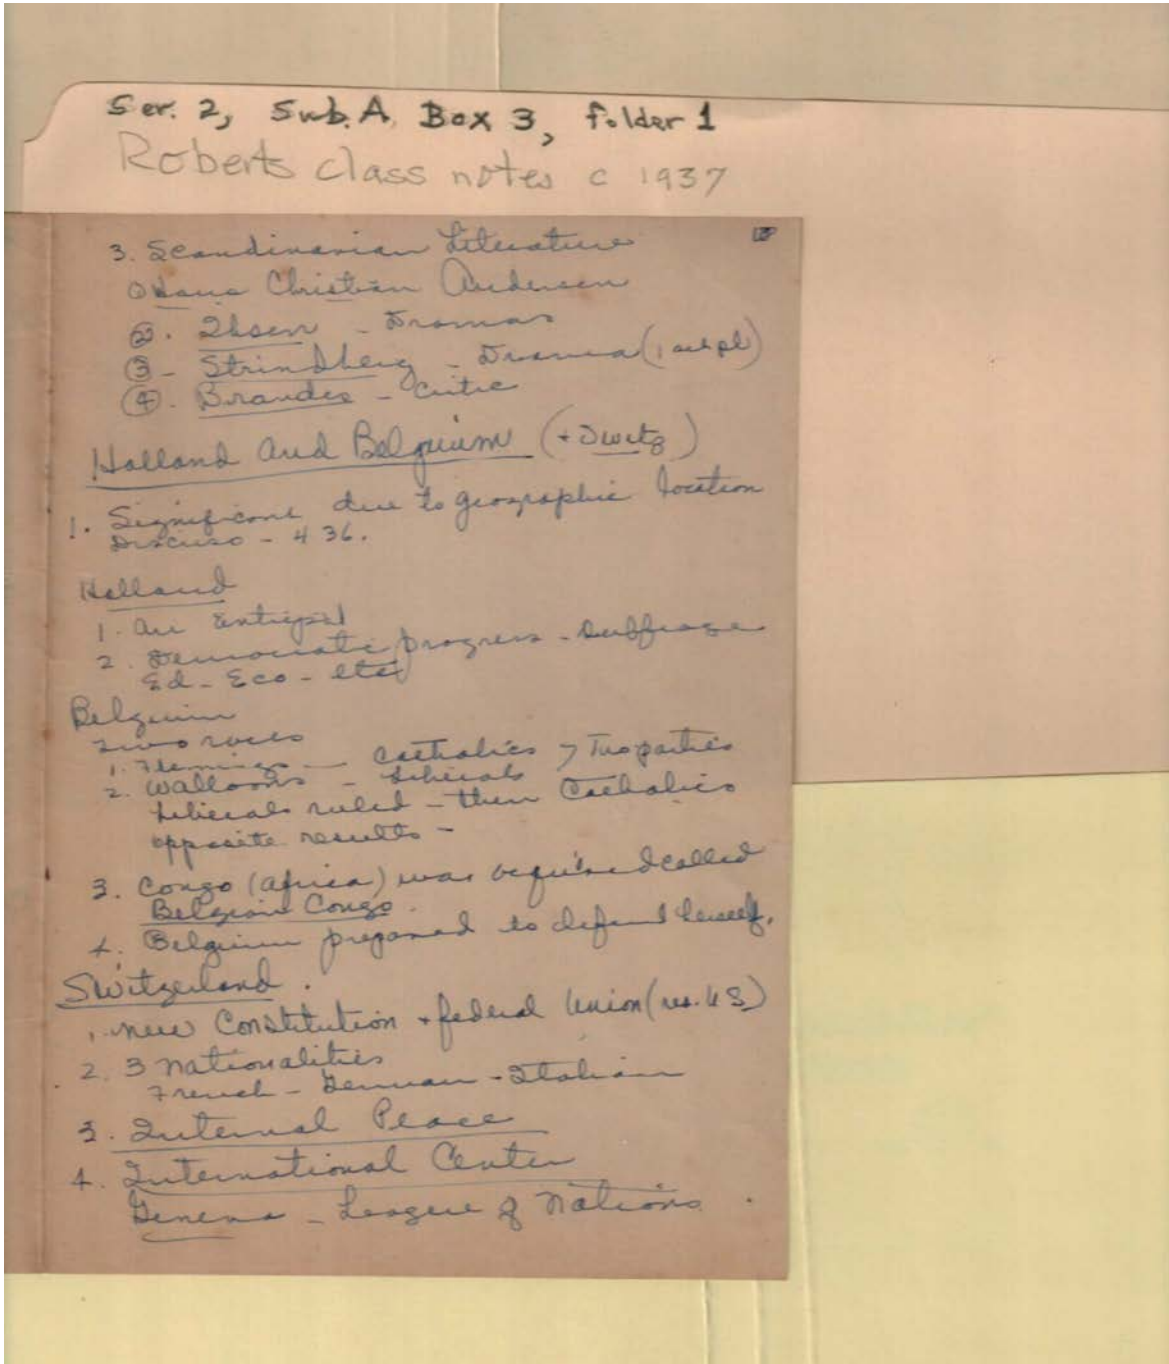 Ser. 2, Sub. A, Box 3, Folder 1
Roberts class notes c 1937
3. Scandinavian Literature
① Hans Christian Andersen
②. Ibsen - Dramas
③ - Strindberg - Drama (1 act pl)
④. Brandes - Critic
Holland and Belguium (+ Switz)
1. Significant due to geographic location
Discuss - 436.
Holland
1. An Entrepot
2. Democratic progress - Suffrage
Ed - Eco - etc
Belguim
Two races
1. Flemings - Catholics > Two parties
2. Walloons - Liberals
Liberals ruled - then Catholics
opposite results -
3. Congo (Africa) was acquired called
Belgian Congo.
4. Belguim prepared to defend herself.
Switzerland.
1. new Constitution + federal Union (res. U S)
2. 3 nationalities
French - German - Italian
3. Internal Peace
4. International Center
Geneva - League of Nations.